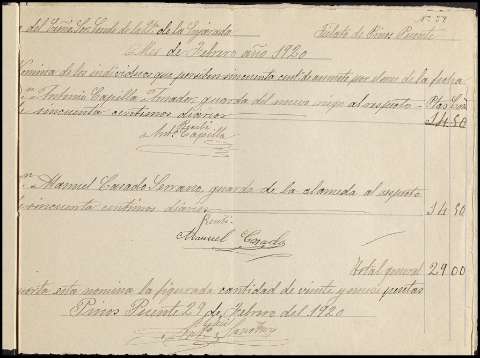 Nº 59
del Exmo Sor Conde de la Qta de la Enjarada Fielato de Pinos Puente
Mes de Febrero año 1920
Nomina de los individuos que perciben cincuenta cent. de aumento por el mes de la fecha
Dn. Antonio Capilla Amador, guarda del nuevo riego al respeto Ptas Cts
de cincuenta centimos diarios 14 50
Recibi
Antº Capilla
Dn. Manuel Casado Serrano, guarda de la alameda al respeto
de cincuenta centimos diarios 14 50
Recibi
Manuel Casado
Total general 29.00
importa esta nomina la figurada cantidad de veinte y nueve pesetas
Pinos Puente 29 de Febrero del 1920